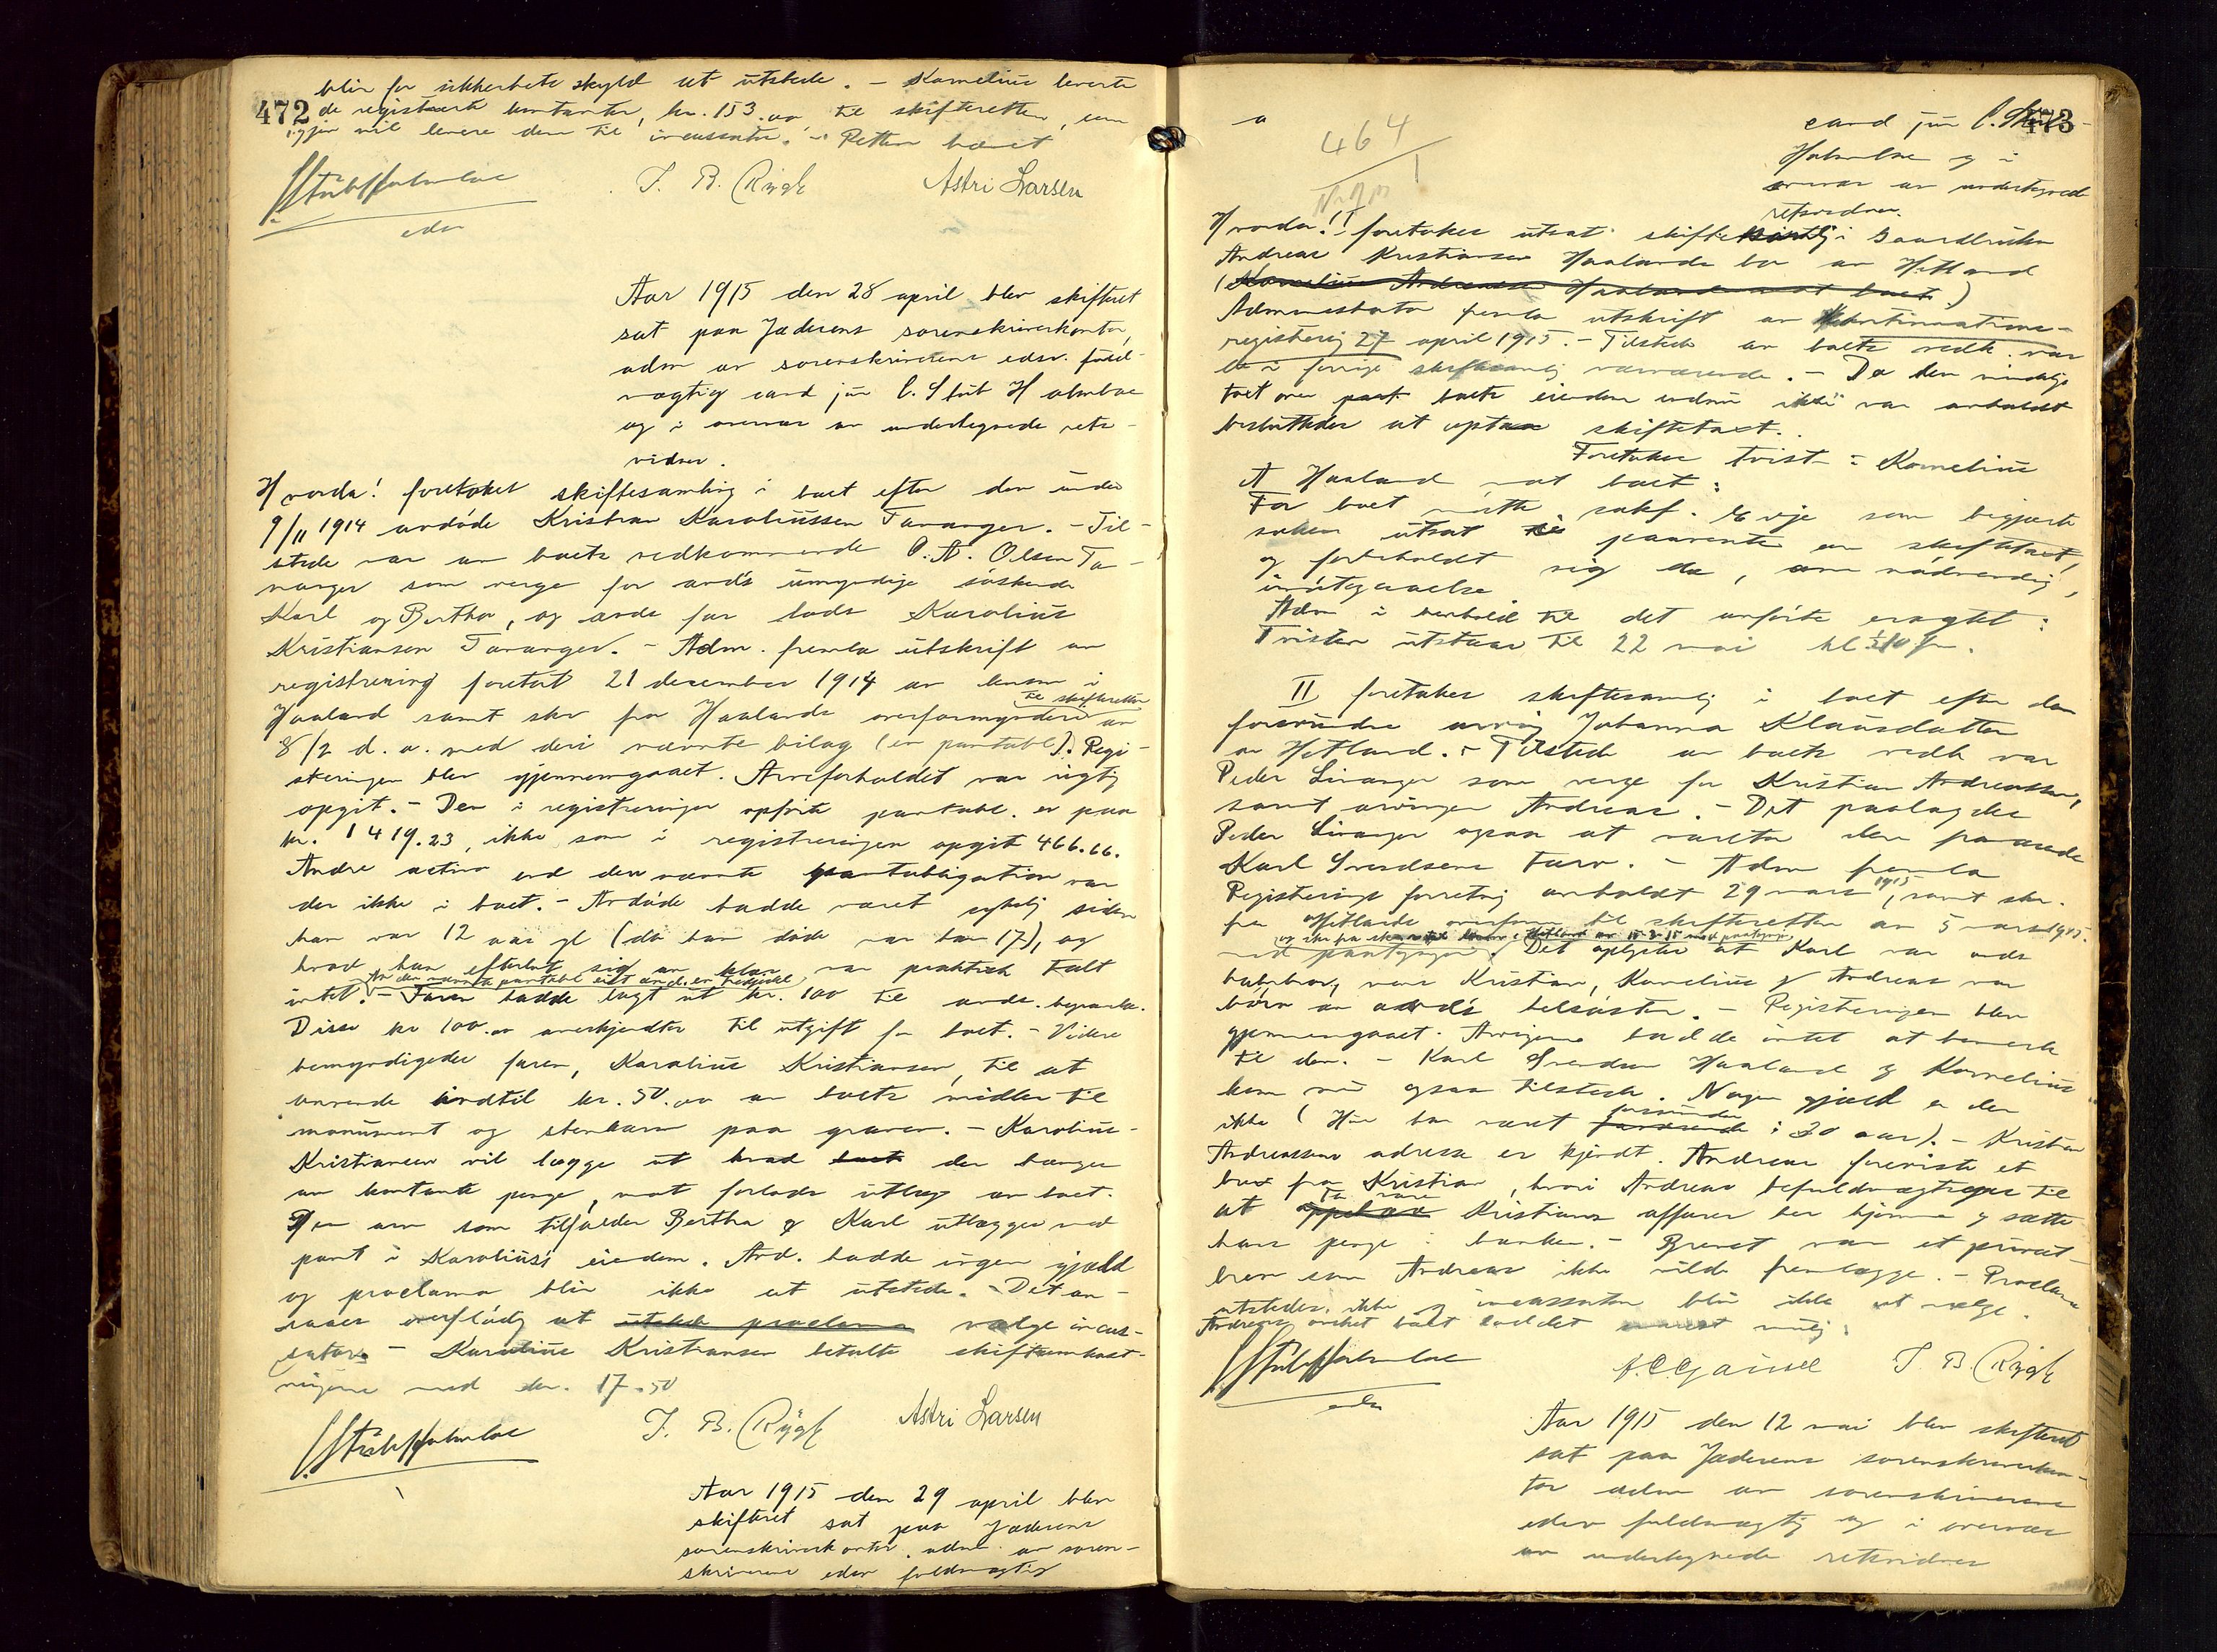 472
blir for sikkerhets skyld at utstede. - Kornelius leverte
de registrerte kontanter, kr. 153.00 til skifteretten, som
igjen vil levere dem til incassator. - Retten hævet
CStübHolmboe T. B. Rygh Astri Larsen
edsv
Aar 1915 den 28 april blev skifteret
sat paa Jæderens sorenskriverkontor,
adm av sorenskriverens edsv. fuld-
mægtig cand jur C. Stüb Holmboe
og i overvær av undertegnede rets-
vidner.
Hvorda! foretokes skiftesamling i boet efter den under
9/11 1914 avdöde Kristian Karoliussen Tananger. - Til-
stede var av boets vedkommende O. A. Olsen Ta-
nanger som verge for avd's umyndige söskende
Karl og Bertha, og avdes far lods Karolius
Kristiansen Tananger. - Adm. fremla utskrift av
registrering foretat 21 december 1914 av lensm i
til skifteretten
Haaland samt skr fra Haalands overformynderi av
8/2 d. a. med deri nævnte bilag (en pantobl). Regi-
streringen blev gjennemgaaet. Arveforholdet var rigtig
opgit. - Den i registreringen opförte pantobl. er paa
kr. 1419.23, ikke som i registreringen opgit 466.66.
Andre activa end den nævnte pantobligation var
der ikke i boet. - Avdöde hadde været sykelig siden
han var 12 aar gl (da han döde var han 17), og
hvad han efterlot sig av klær var praktisk talt
av den nævnte pantobl eiet avd. en trediedel
intet. - Faren hadde lagt ut kr. 100 til avds. begravelse.
Disse kr 100.00 anerkjendtes til utgift for boet. - Videre
bemyndigedes faren, Karolius Kristiansen, til at
anvende indtil kr. 50.00 av boets midler til
monument og stenkarm paa graven. - Karolius
Kristiansen vil lægge ut hvad boet der trænges
av kontante penge, mot forlods utlæg av boet.
Den arv som tilfalder Bertha & Karl utlægges med
pant i Karolius's eiendom. Avd. hadde ingen gjæld
og proclama blir ikke at utstede. - Det an-
saaes overflödig at utstede proclama vælge incas-
sator. - Karolius Kristiansen betalte skifteomkost-
ningene med kr. 17.50
CStübHolmboe T. B. Rygh Astri Larsen
Aar 1915 den 29 april blev
skifteret sat paa Jæderens
sorenskriverkontor, adm. av soren-
skriverens edsv fuldmægtig
473
cand jur C. Stüb-
Holmboe og i
overvær av undertegnede
retsvidner.
464
1
Hvorda! I foretokes utsat skiftesamling i Gaardbruker
Andreas Kristiansen Haalands bo av Hetland
(Kornelius Andreassen Haaland mot boet)
Administrator fremla utskrift av kontinuations-
registering 27 april 1915. - Tilstede av boets vedk. var
de i forrige skiftesamling nærværende. - Da den mindelige
takst over boets eiendom endnu ikke var avholdt
besluttedes at optaa skiftetakst.
Foretokes tvist - : Kornelius
A Haaland mot boet:
For boet mötte sakf. Evje som begjærte
saken utsat i paavente av skiftetakst,
og forbeholdt sig da, om nödvendig,
imötegaaelse
Adm i henhold til det anförte eragtet:
Tvisten utstaar til 22 mai kl 1/2 10 fm.
II foretokes skiftesamling i boet efter den
forsvundne Johanna Klausdatter
av Hetland. - Tilstede av boets vedk var
Peder Livanger som verge for Kristian Andreassen,
samt arvingen Andreas. - Det paalagdes
Peder Livanger ogsaa at vareta den
Karl Svendsens tarv. - Adm fremla
Registerings forretning avholdt 29 mars 1915, samt skr.
fra Hetlands overform til skifteretten av 5 mars 1915.
med pantegjæ. Det oplystes at Karl var avds
halvbror, mens Kristian, Kornelius & Andreas var
börn av avd's helsöster. - Registeringen blev
gjennemgaaet. Arvingene hadde intet at bemerke
til den. - Karl Svendsen Haaland & Kornelius
kom nu ogsaa tilstede. Nogen gjæld er der
forsvunden
ikke (Hun har været i 30 aar). - Kristian
Andreassens adresse er kjendt. Andreas foreviste et
brev fra Kristian, hvori Andreas befuldmægtiges til
ta vare
at Kristians affærer her hjemme & sætte
hans penge i banken. - Brevet var et privat-
brev som Andreas ikke vilde fremlægge. - Proclama
utstedes ikke og incassator blir ikke at vælge.
Andreas önsket boet sluttet snarest mulig.
CStübHolmboe A. C. Gausel T. B. Rygh
edsv
Aar 1915 den 12 mai blev skifteret
sat paa Jæderens sorenskriverkon-
tor adm av sorenskriverens
edsv fuldmægtig og i overvær
av undertegnede retsvidner